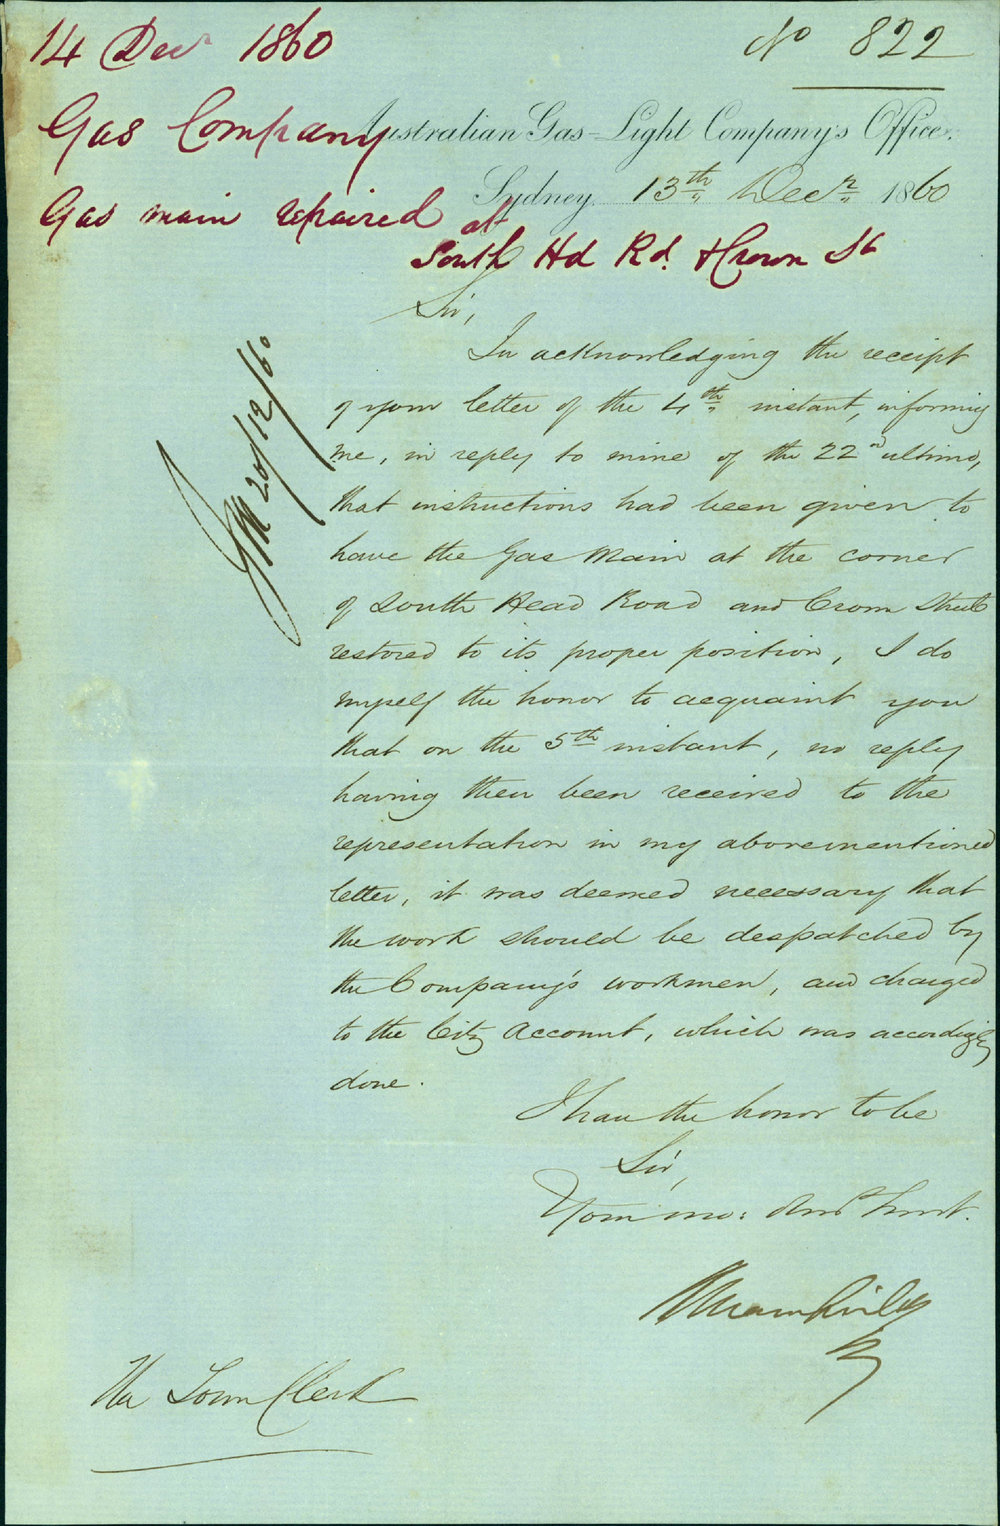 14 Decr 1860
No 822
Gas Company
Australian Gas-Light Company's Office.
Sydney, 13th Decr 1860
Gas main repaired at
South Hd Rd. & Crown St
Sir,
In acknowledging the receipt
of your letter of the 4th instant, informing
me, in reply to mine of the 22nd ultimo,
that instructions had been given to
have the Gas Main at the corner
of South Head Road and Crown Street
restored to its proper position, I do
myself the honor to acquaint you
that on the 5th instant, no reply
having then been received to the
representation in my abovementioned
letter, it was deemed necessary that
the work should be despatched by
the Company's workmen, and charged
to the City Account, which was accordingly
done.
I have the honor to be
Sir,
Your mo: Obnt Servt.
The Town Clerk
20/12/60